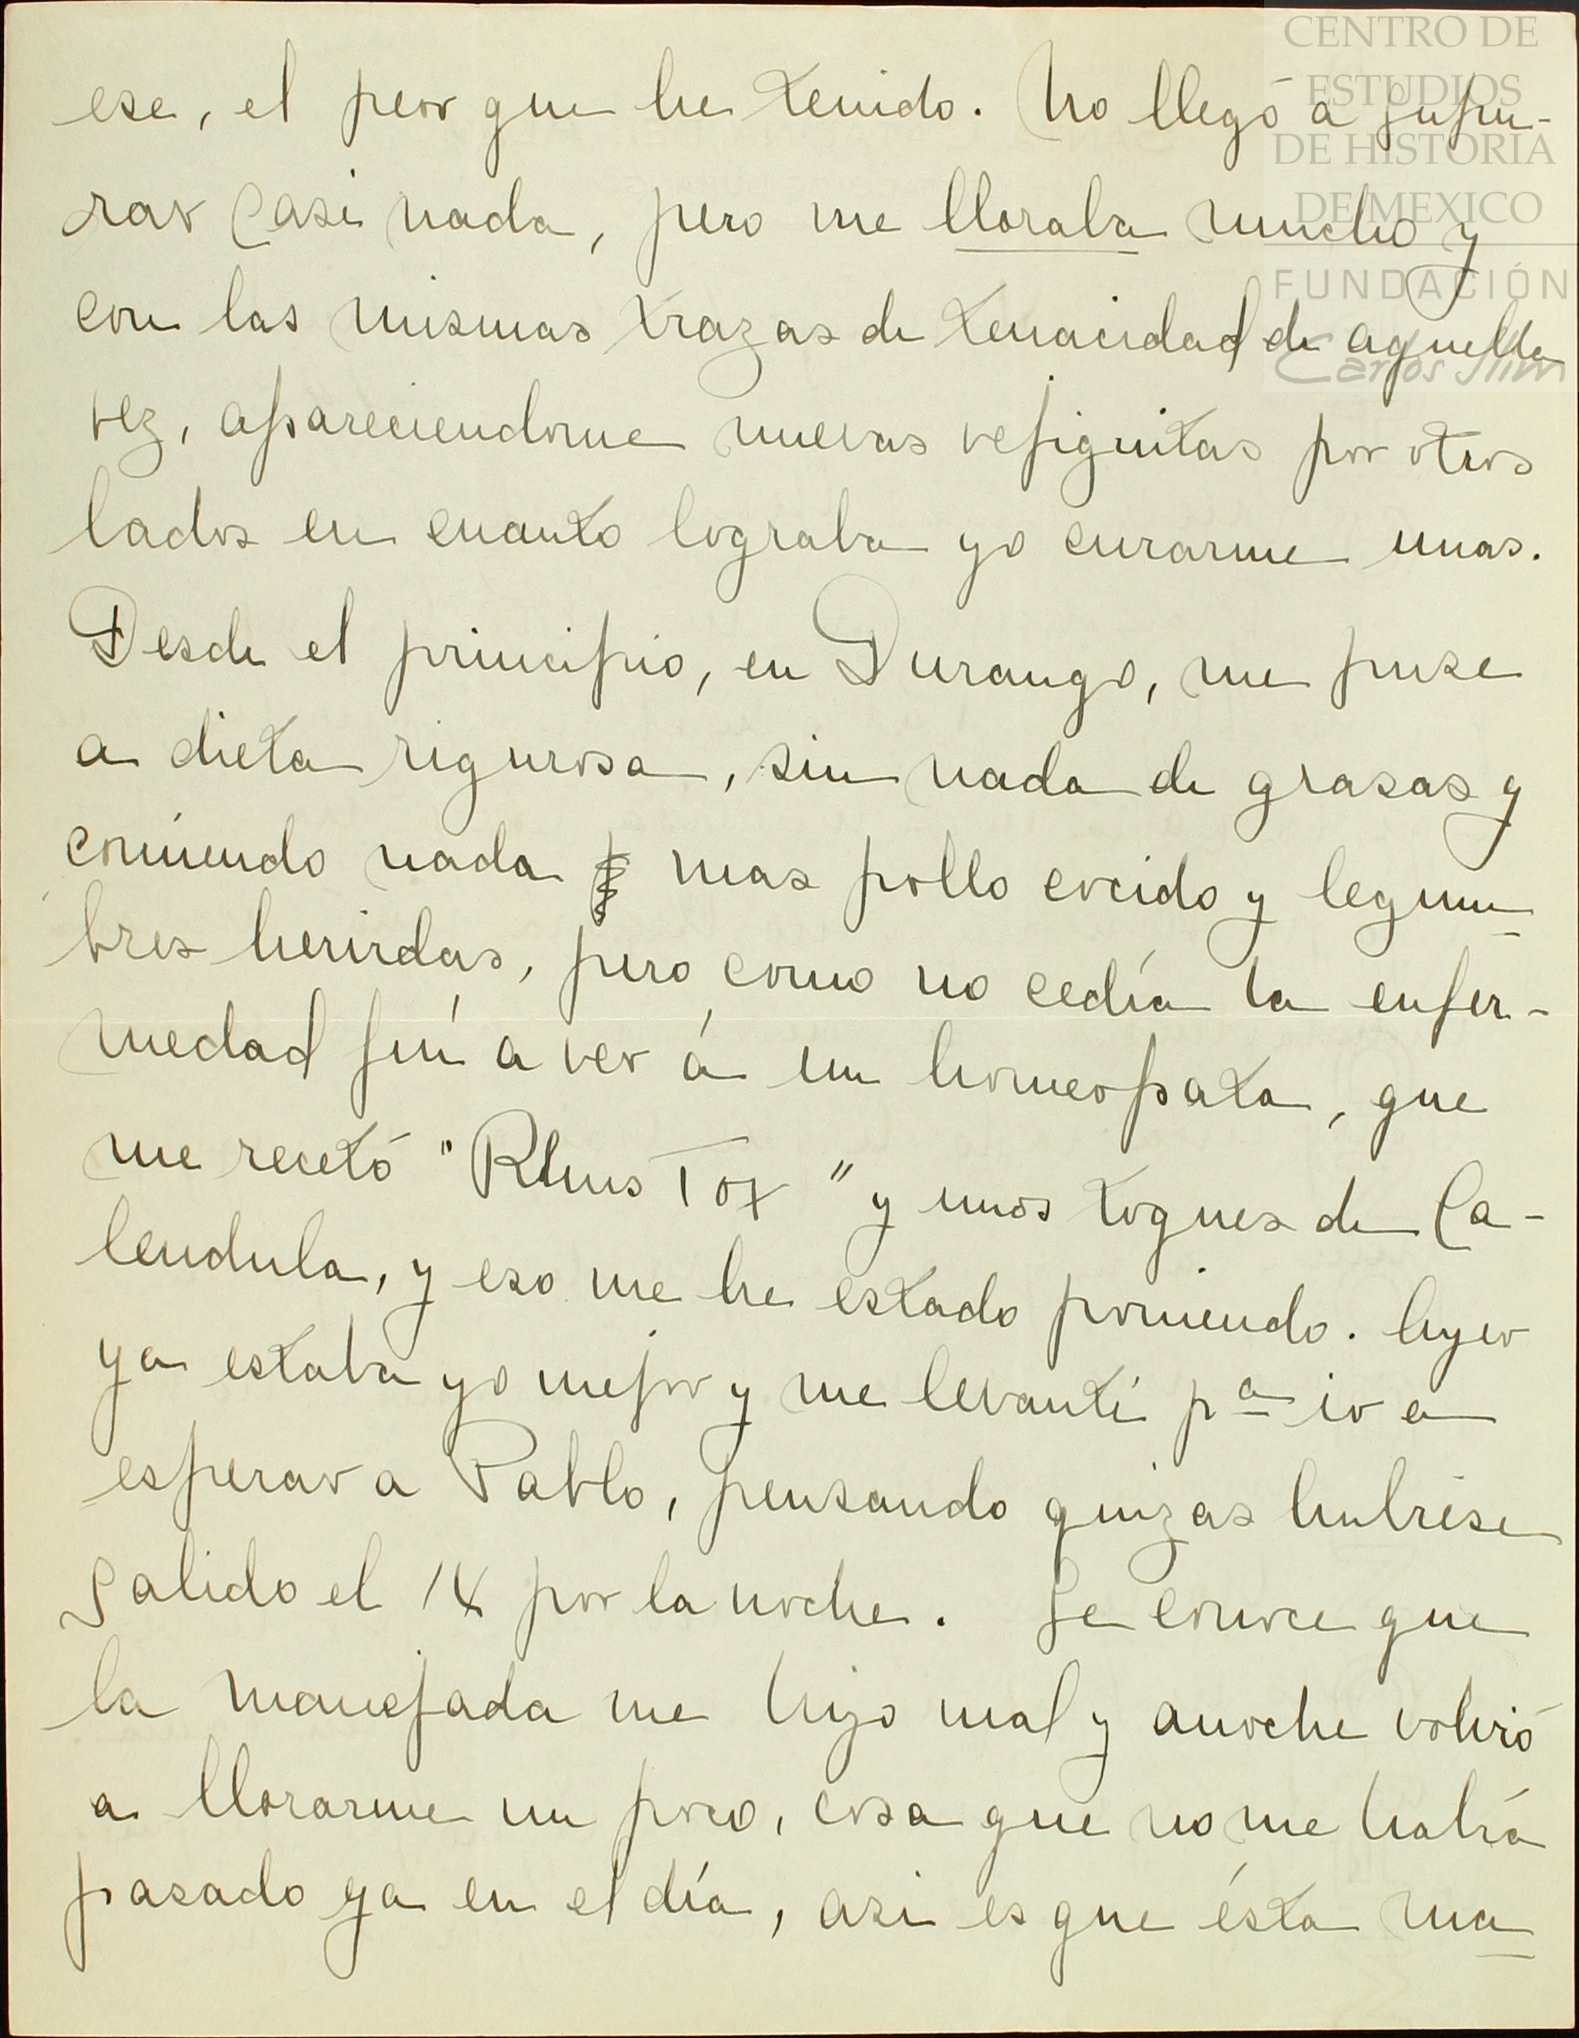 CENTRO DE
ESTUDIOS
DE HISTORIA
DE MEXICO
FUNDACIÓN
Carlos Slim
ese, el peor que he tenido. No llegó a supu-
rar casi nada, pero me lloraba mucho y
con las mismas trazas de tenacidad de aquella
vez, apareciendome nuevas vejiguitas por otros
lados en cuanto lograba yo curarme unas.
Desde el principio, en Durango, me puse
a dieta rigurosa, sin nada de grasas y
comiendo nada mas pollo cocido y legum-
bres hervidas, pero como no cedía la enfer-
medad fuí a ver á un homeopata, que
me recetó "Rhus Tox" y unos toques de Ca-
lendula, y eso me he estado poniendo. Ayer
ya estaba yo mejor y me levanté pa ir a
esperar a Pablo, pensando quizas hubiese
salido el 14 por la noche. Se conoce que
la manejada me hizo mal y anoche volvió
a llorarme un poco, cosa que no me había
pasado ya en el día, asi es que ésta ma-